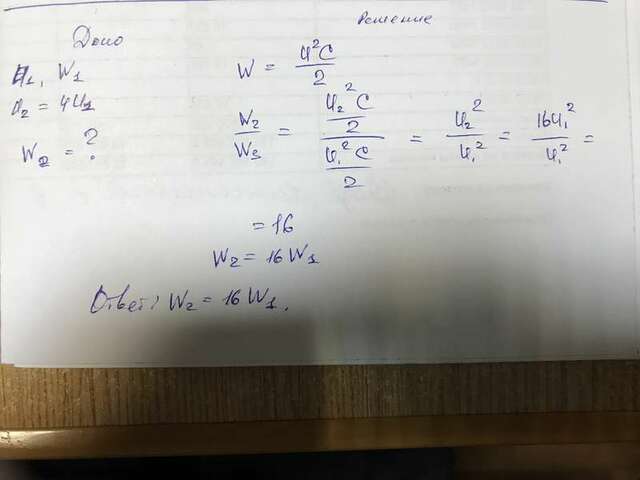 Дано
U₁, W₁
U₂ = 4U₁
W₂ = ?
Решение
W = U²C / 2
W₂ / W₁ = (U₂²C / 2) / (U₁²C / 2) = U₂² / U₁² = 16U₁² / U₁² =
= 16
W₂ = 16 W₁
Ответ: W₂ = 16 W₁.